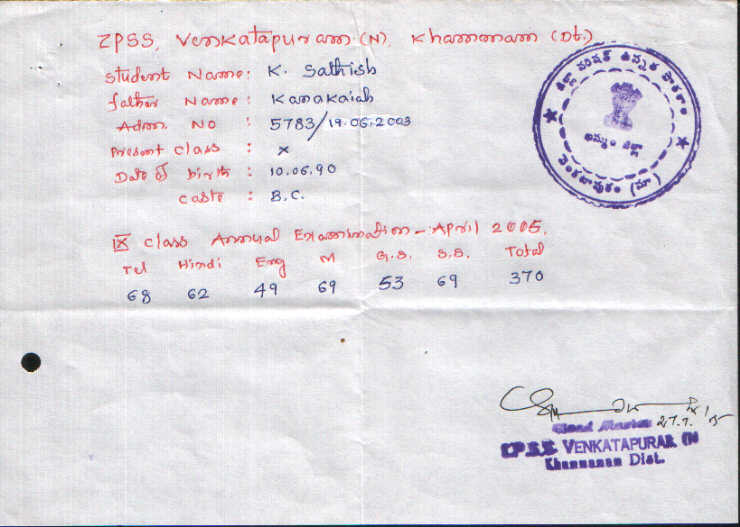 ZPSS, Venkatapuram (N), Khammam (Dt.)
Student Name: K. Sathish
father Name: Kanakaiah
Adm. No : 5783/19.06.2003
Present class : X
Date of birth : 10.06.90
caste : B.C.
జిల్లా పరిషత్ ఉన్నత పాఠశాల
ఖమ్మం జిల్లా
వెంకటాపురం (మా)
IX class Annual Examination - April 2005.
Tel Hindi Eng M G.S. S.S. Total
68 62 49 69 53 69 370
27.7.
Head Master
Z.P.S.S. VENKATAPURAM (N
Khammam Dist.